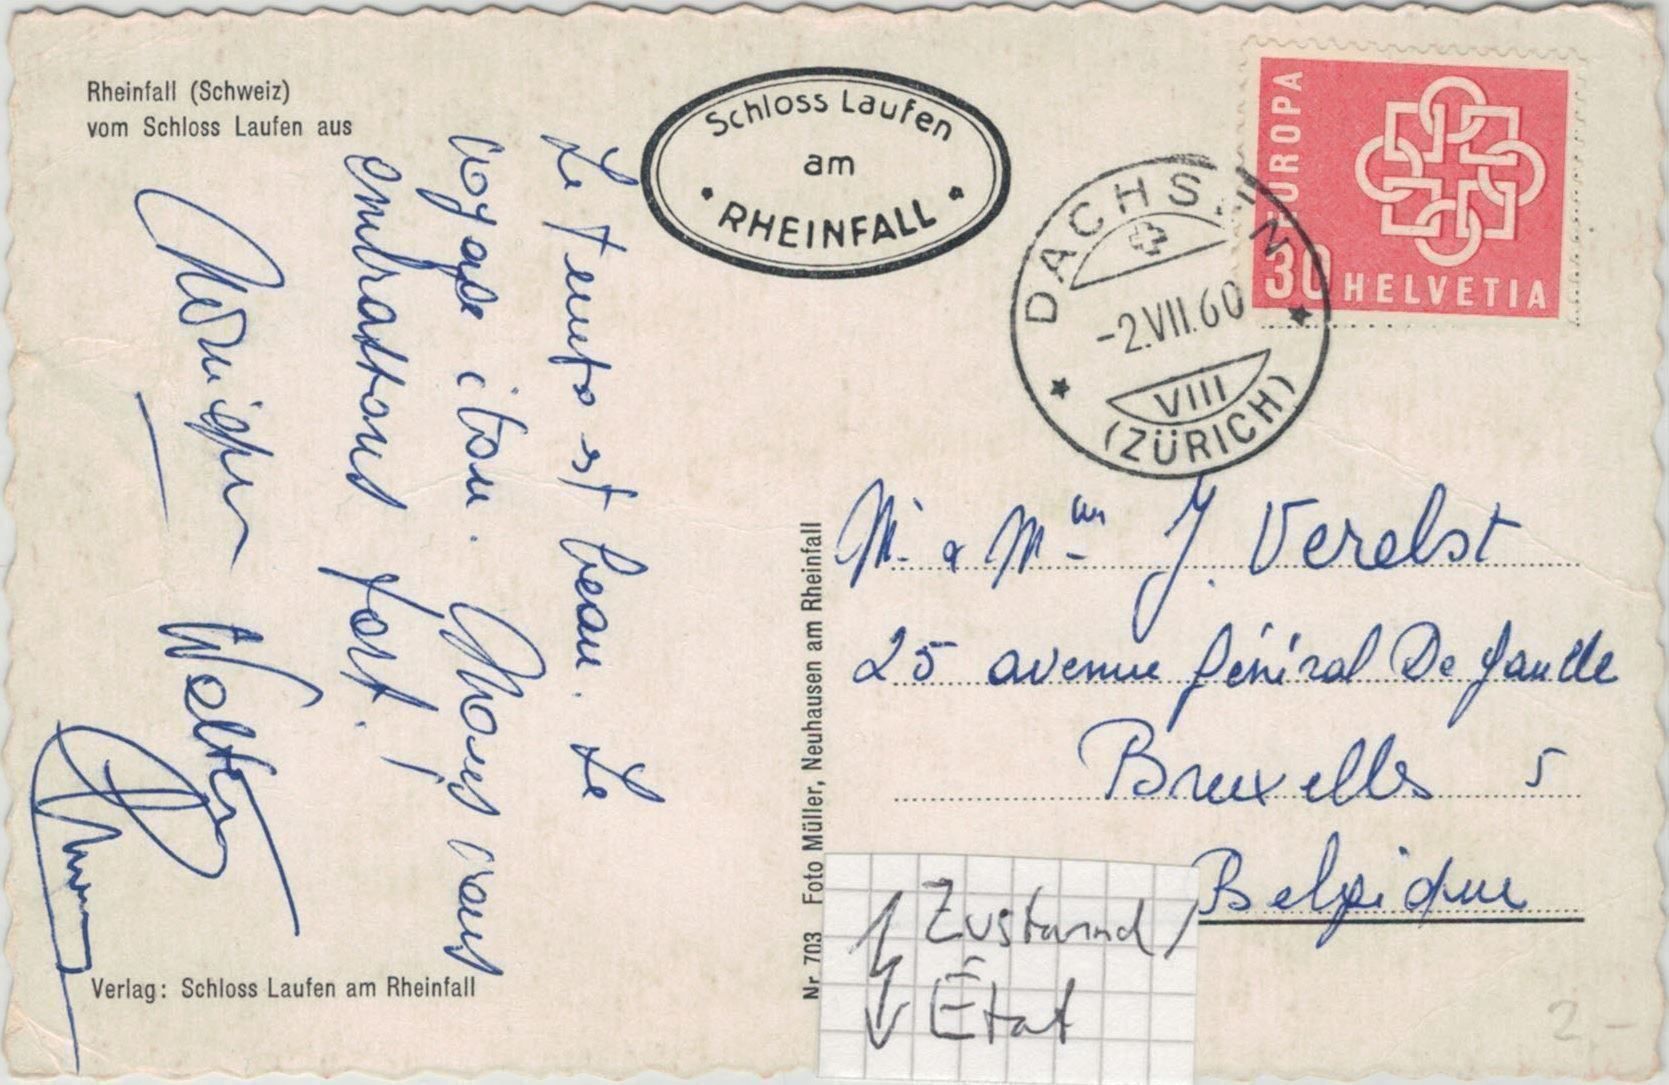 Rheinfall (Schweiz)
vom Schloss Laufen aus
Schloss Laufen
am
RHEINFALL
DACHSEN
-2.VII.60
VIII
(ZÜRICH)
EUROPA
30 HELVETIA
Le temps est beau. Le
voyage
embrassons fort!
Monique Walter
Mr & Mme J. Verelst
25 avenue Général De Gaulle
Bruxelles 5
Belgique
Nr 703 Foto Müller, Neuhausen am Rheinfall
Verlag: Schloss Laufen am Rheinfall
Zustand/
État
2-